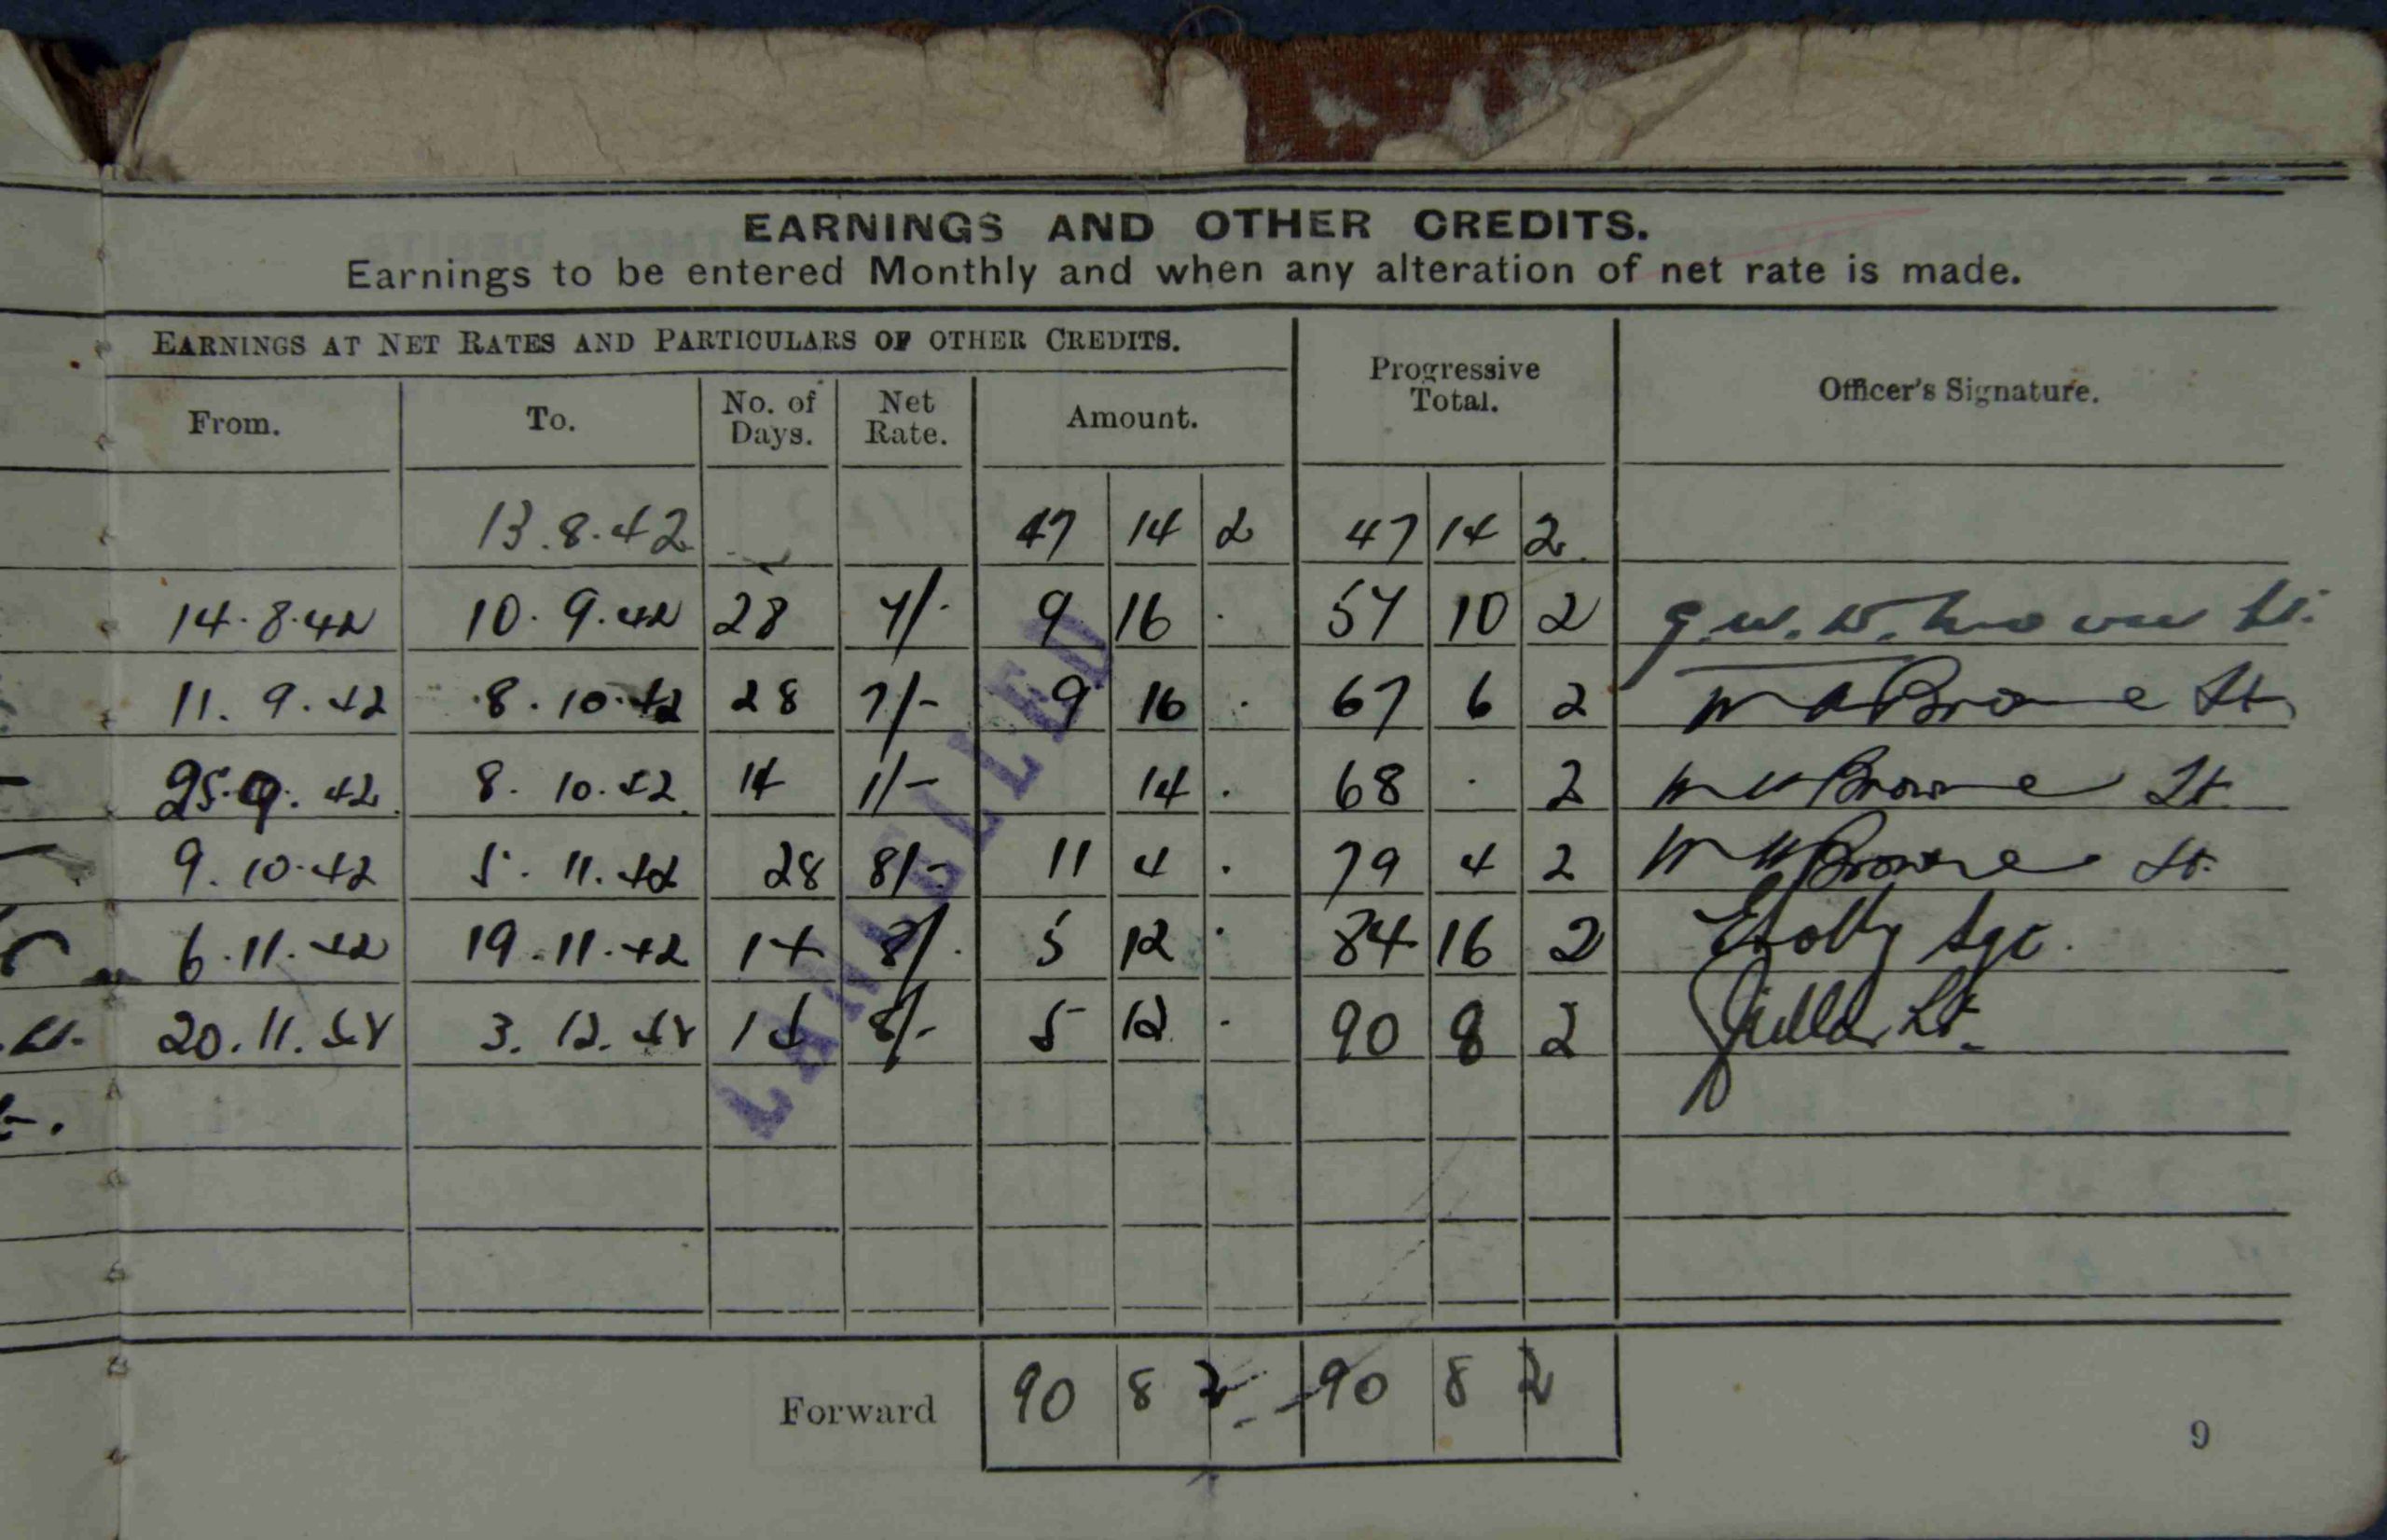 EARNINGS AND OTHER CREDITS.
Earnings to be entered Monthly and when any alteration of net rate is made.
EARNINGS AT NET RATES AND PARTICULARS OF OTHER CREDITS. Progressive Total. Officer's Signature.
From. To. No. of Days. Net Rate. Amount.
13.8.42 47 14 2 47 14 2
14.8.42 10.9.42 28 7/- 9 16 . 57 10 2 Lt.
11.9.42 8.10.42 28 7/- 9 16 . 67 6 2 Browne Lt
25.9.42 8.10.42 14 1/- 14 . 68 . 2 Browne Lt.
9.10.42 5.11.42 28 8/- 11 4 . 79 4 2 Browne Lt.
6.11.42 19.11.42 14 8/- 5 12 . 84 16 2
20.11.42 3.12.42 14 8/- 5 12 . 90 8 2 Lt.
CANCELLED
Forward 90 8 2 90 8 2
9